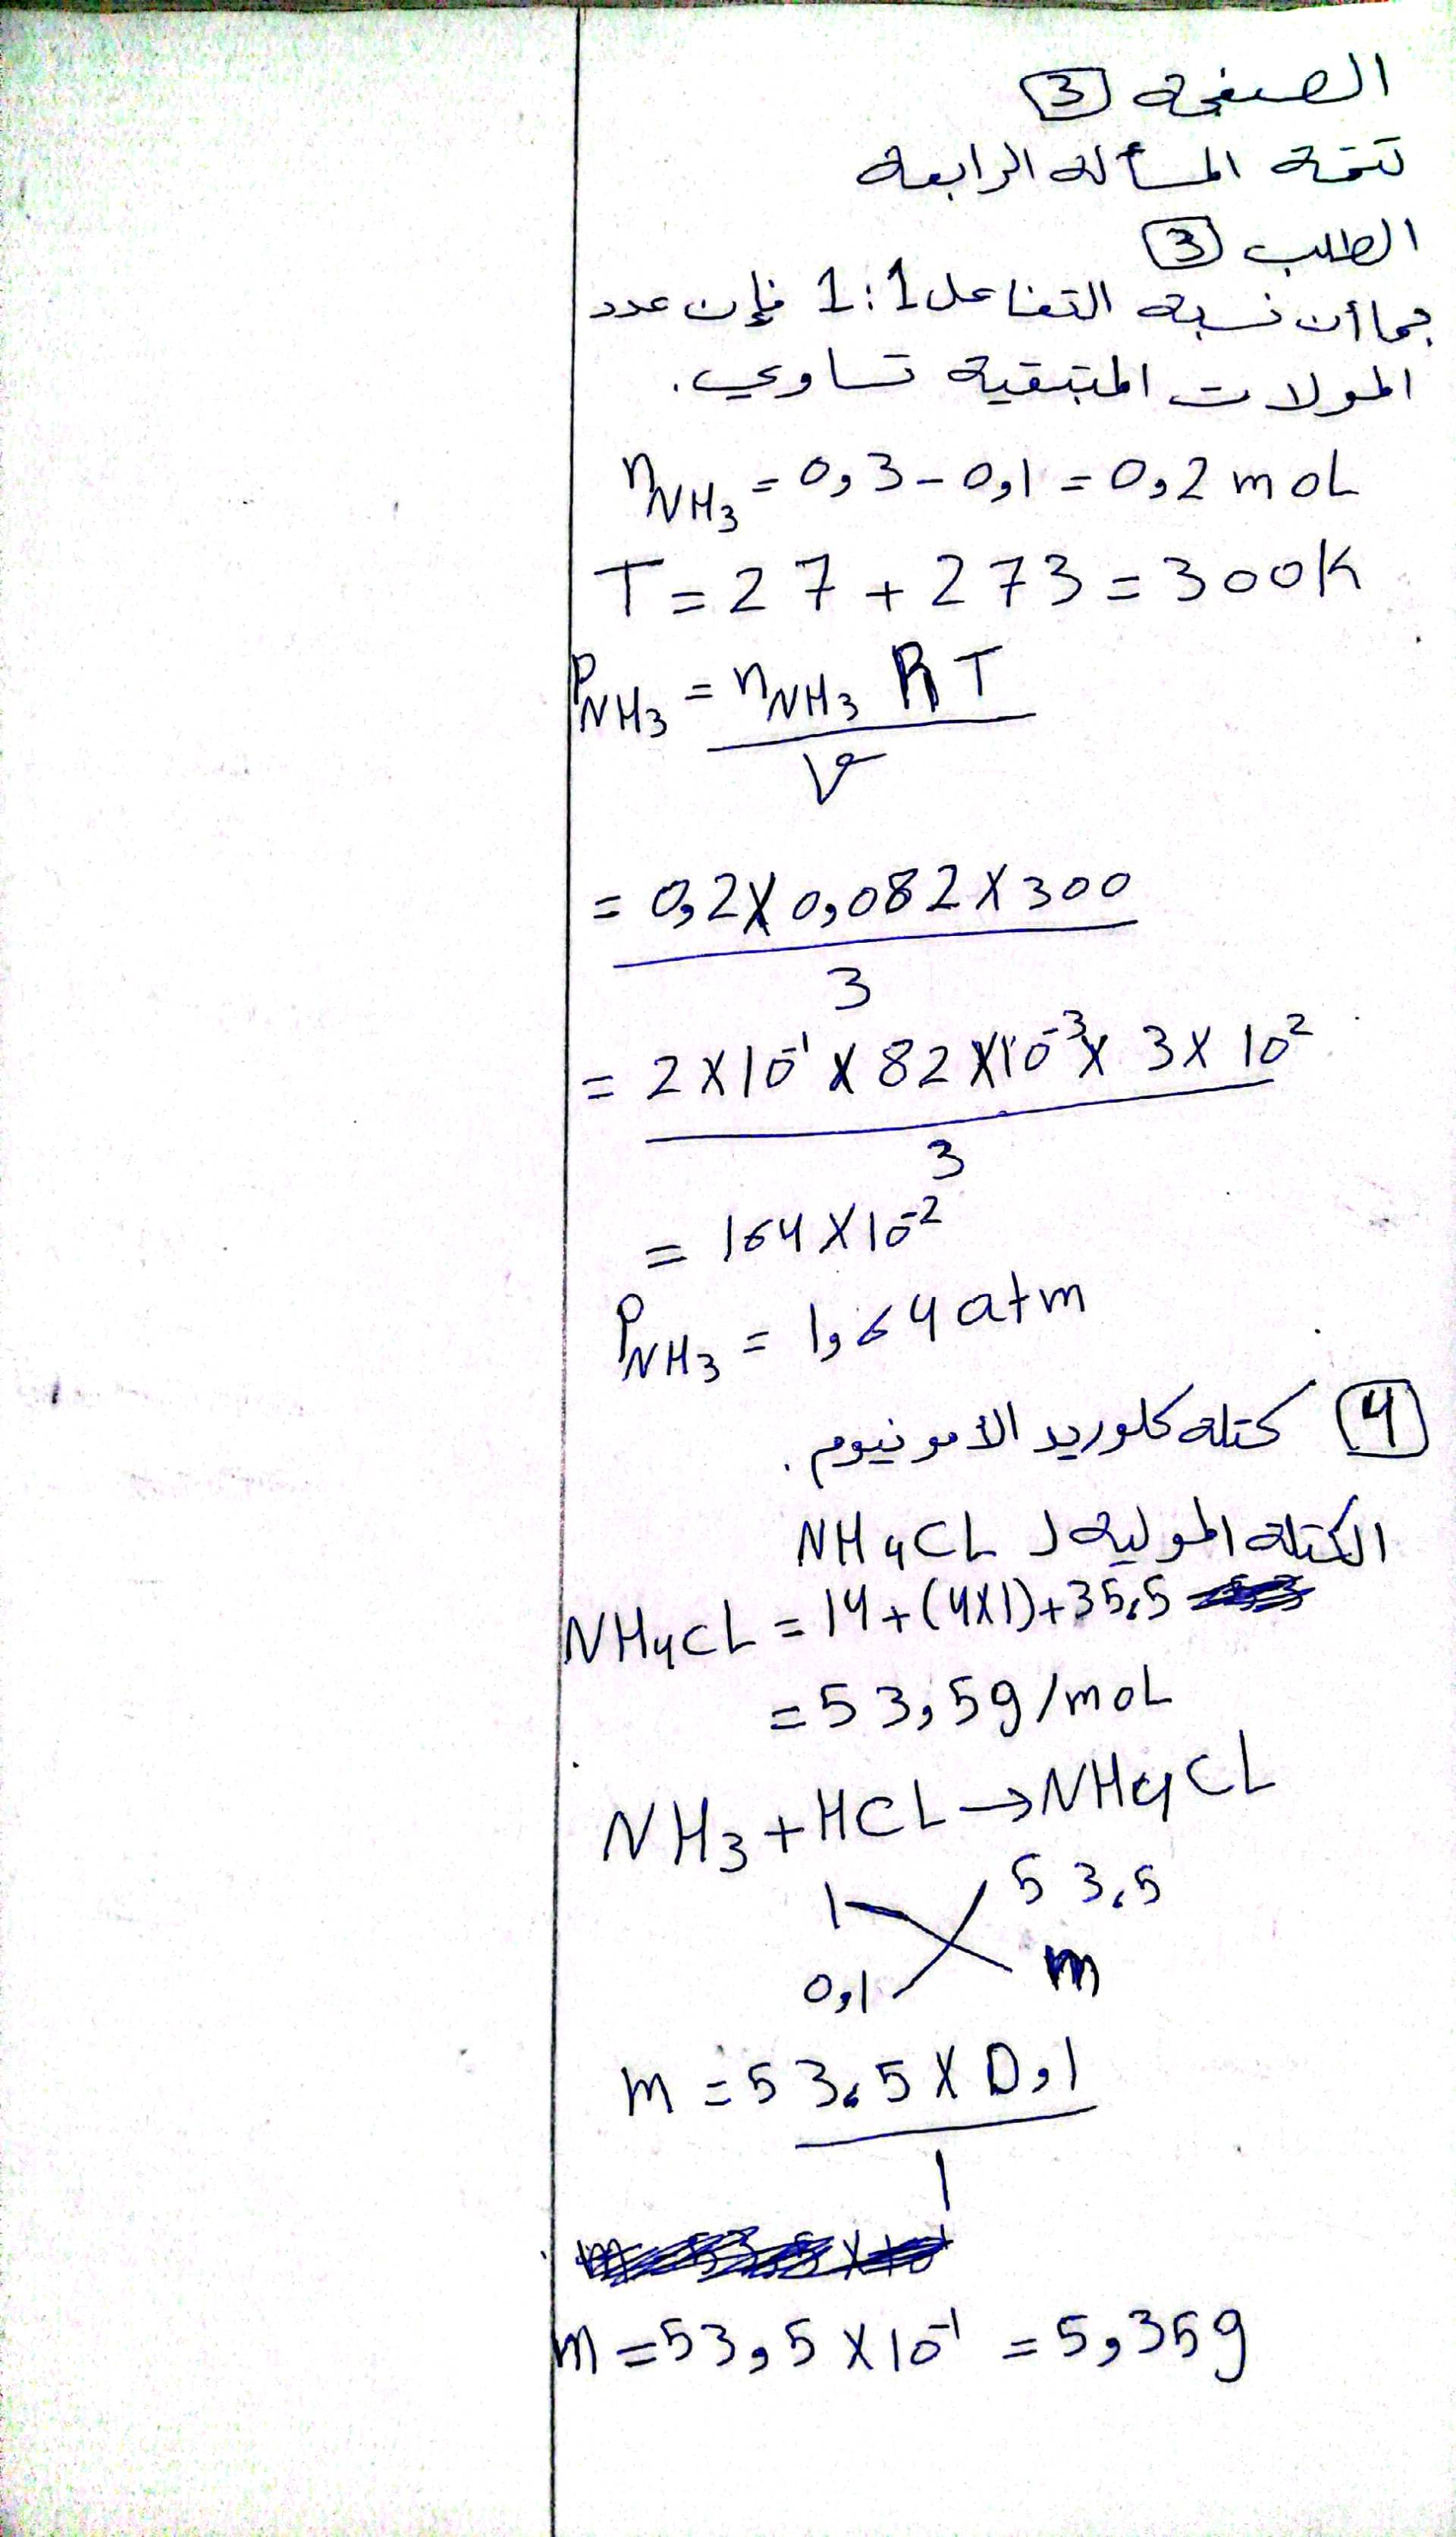 الصفحة 3
تتمة المسألة الرابعة
الطلب 3
بما أن نسبة التفاعل 1:1 فإن عدد
المولات المتبقية تساوي.
nNH₃ = 0,3 - 0,1 = 0,2 moL
T = 27 + 273 = 300K
PNH₃ = nNH₃ RT
V
= 0,2 X 0,082 X 300
3
= 2 X 10⁻¹ X 82 X 10⁻³ X 3 X 10²
3
= 164 X 10⁻²
PNH₃ = 1,64 atm
4 كتلة كلوريد الأمونيوم.
الكتلة المولية لـ NH₄CL
NH₄CL = 14 + (4X1) + 35,5
= 53,5g/moL
NH₃ + HCL → NH₄CL
1 53,5
0,1 m
m = 53,5 X 0,1
1
m = 53,5 X 10⁻¹ = 5,35g